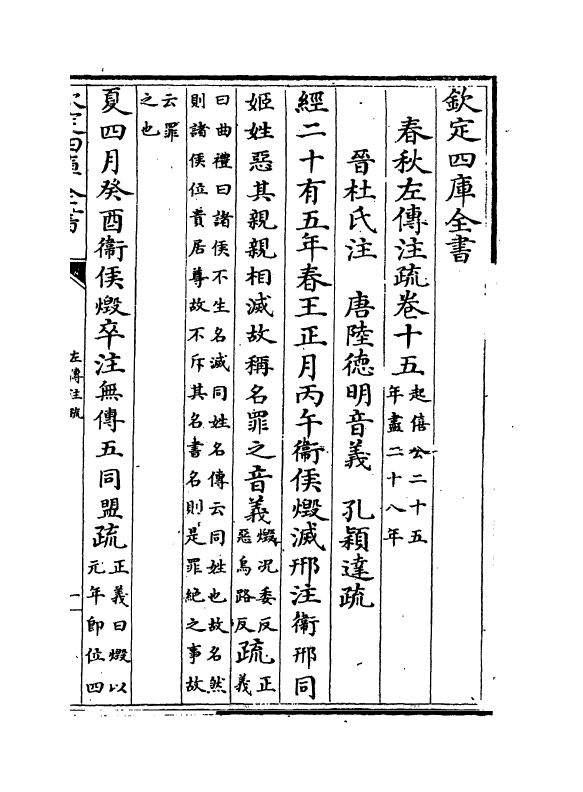 欽定四庫全書
春秋左傳注疏卷十五起僖公二十五
年盡二十八年
晉杜氏注　唐陸德明音義　孔穎達疏
經二十有五年春王正月丙午衛侯燬滅邢注衛邢同
姬姓惡其親親相滅故稱名罪之音義燬况委反
惡烏路反疏正
義
曰曲禮曰諸侯不生名滅同姓名傳云同姓也故名然
則諸侯位貴居尊故不斥其名書名則是罪絕之事故
云罪
之也
夏四月癸酉衛侯燬卒注無傳五同盟疏正義曰燬以
元年即位四
欽定四庫全書
左傳注疏
一